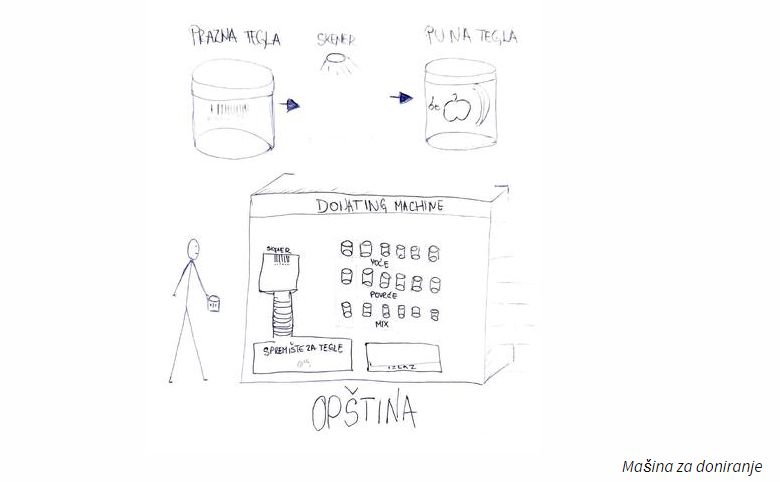 PRAZNA TEGLA
SKENER
PUNA TEGLA
DONATING MACHINE
SKENER
VOĆE
POVRĆE
MIX
SPREMIŠTE ZA TEGLE
IZLAZ
OPŠTINA
Mašina za doniranje